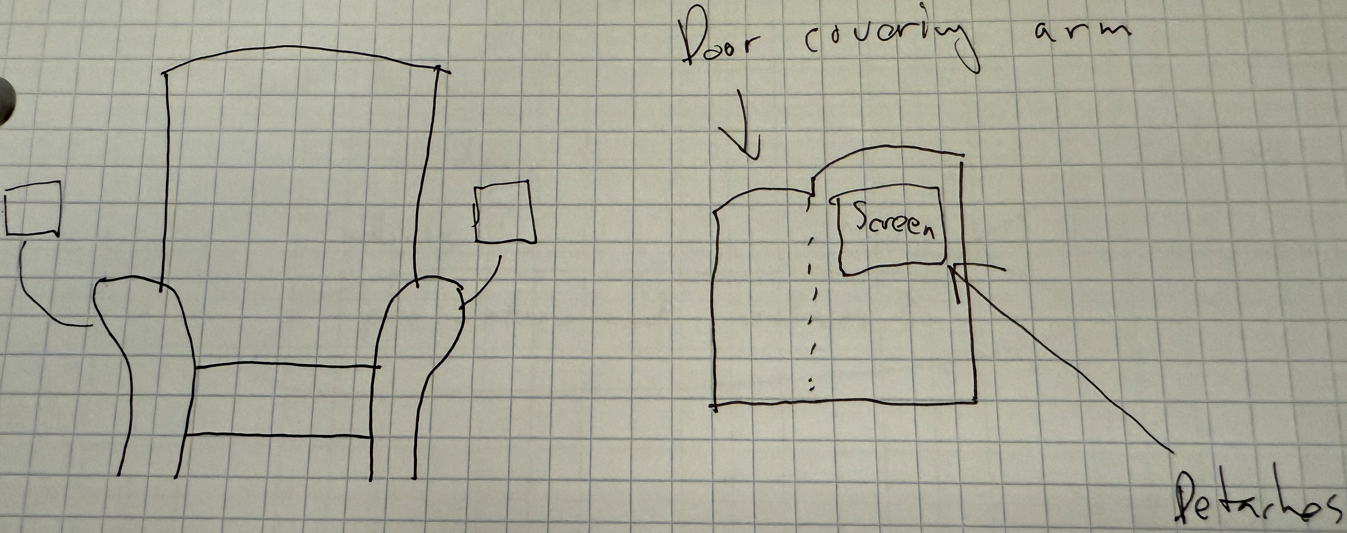 Door covering arm
Screen
Detaches